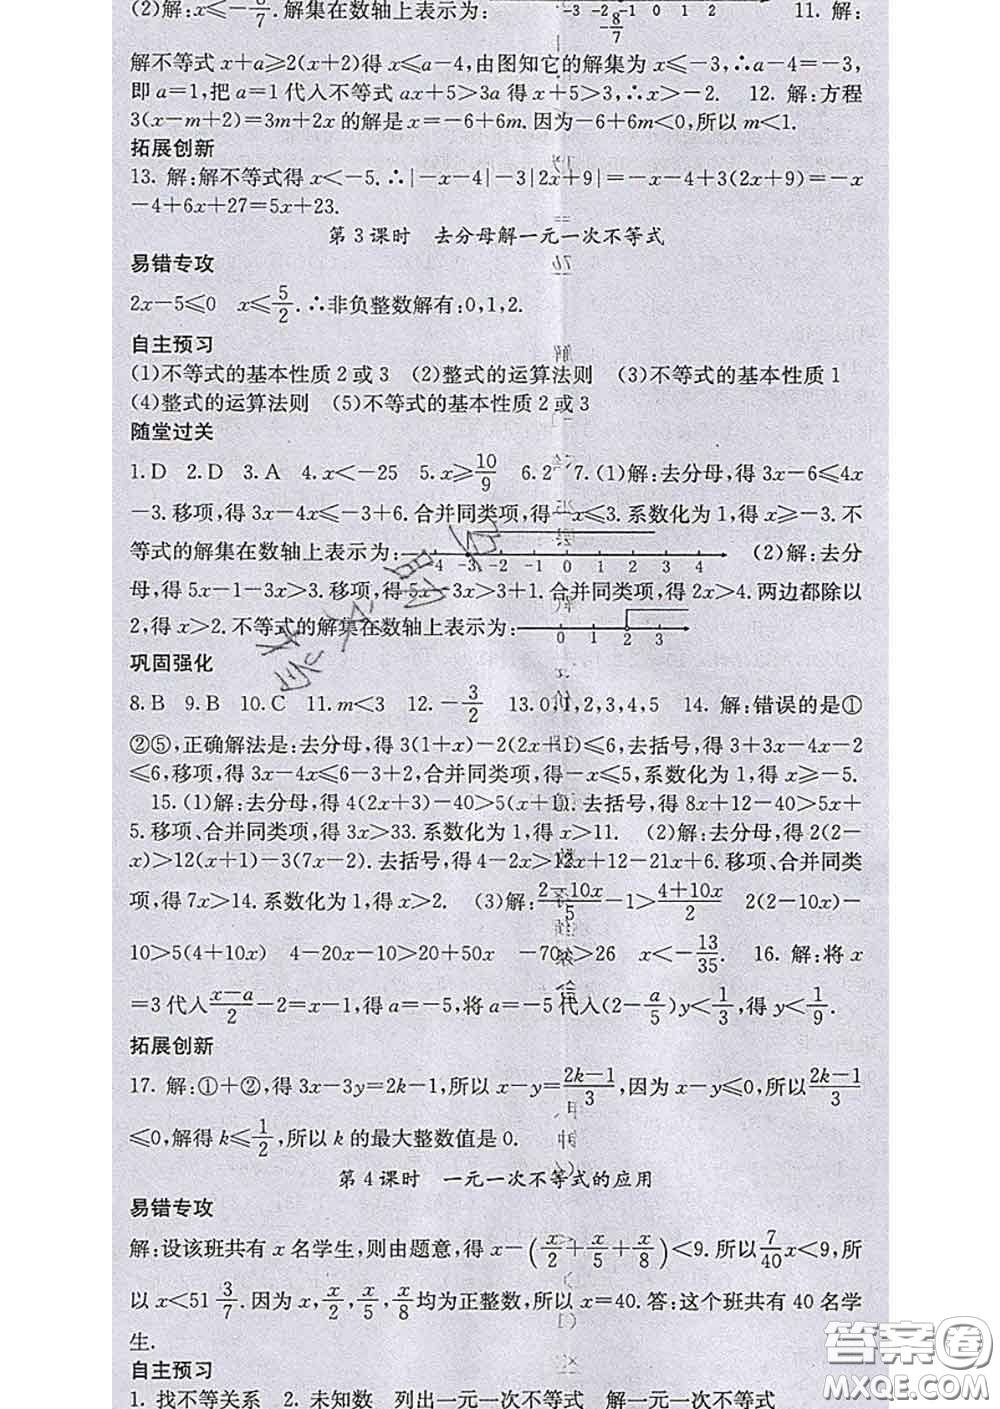 (2)解:x≤-8/7.解集在数轴上表示为: -3 -2 -1 0 1 2 11. 解:
-8/7
解不等式 x+a≥2(x+2)得 x≤a-4,由图知它的解集为 x≤-3,∴a-4=-3,
即 a=1,把 a=1 代入不等式 ax+5>3a 得 x+5>3,∴x>-2. 12. 解:方程
3(x-m+2)=3m+2x 的解是 x=-6+6m.因为-6+6m<0,所以 m<1.
拓展创新
13. 解:解不等式得 x<-5.∴|-x-4|-3|2x+9|=-x-4+3(2x+9)=-x
-4+6x+27=5x+23.
第 3 课时 去分母解一元一次不等式
易错专攻
2x-5≤0 x≤5/2.∴非负整数解有:0,1,2.
自主预习
(1)不等式的基本性质 2 或 3 (2)整式的运算法则 (3)不等式的基本性质 1
(4)整式的运算法则 (5)不等式的基本性质 2 或 3
随堂过关
1. D 2. D 3. A 4. x<-25 5. x≥10/9 6. 2 7. (1)解:去分母,得 3x-6≤4x
-3.移项,得 3x-4x≤-3+6.合并同类项,得-x≤3.系数化为 1,得 x≥-3.不
等式的解集在数轴上表示为: -4 -3 -2 -1 0 1 2 3 4 (2)解:去分
母,得 5x-1-3x>3.移项,得 5x-3x>3+1.合并同类项,得 2x>4.两边都除以
2,得 x>2.不等式的解集在数轴上表示为: 0 1 2 3
巩固强化
8. B 9. B 10. C 11. m<3 12. -3/2 13. 0,1,2,3,4,5 14. 解:错误的是①
②⑤,正确解法是:去分母,得 3(1+x)-2(2x+1)≤6,去括号,得 3+3x-4x-2
≤6,移项,得 3x-4x≤6-3+2,合并同类项,得-x≤5,系数化为 1,得 x≥-5.
15. (1)解:去分母,得 4(2x+3)-40>5(x+1).去括号,得 8x+12-40>5x+
5.移项、合并同类项,得 3x>33.系数化为 1,得 x>11. (2)解:去分母,得 2(2-
x)>12(x+1)-3(7x-2).去括号,得 4-2x>12x+12-21x+6.移项、合并同类
项,得 7x>14.系数化为 1,得 x>2. (3)解:(2-10x)/5-1>(4+10x)/2 2(2-10x)-
10>5(4+10x) 4-20x-10>20+50x -70x>26 x<-13/35. 16. 解:将 x
=3 代入(x-a)/2-2=x-1,得 a=-5,将 a=-5 代入(2-a/5)y<1/3,得 y<1/9.
拓展创新
17. 解:①+②,得 3x-3y=2k-1,所以 x-y=(2k-1)/3,因为 x-y≤0,所以(2k-1)/3
≤0,解得 k≤1/2,所以 k 的最大整数值是 0.
第 4 课时 一元一次不等式的应用
易错专攻
解:设该班共有 x 名学生,则由题意,得 x-(x/2+x/5+x/8)<9.所以7/40x<9,所
以 x<51 3/7.因为 x,x/2,x/5,x/8均为正整数,所以 x=40.答:这个班共有 40 名学
生.
自主预习
1. 找不等关系 2. 未知数 列出一元一次不等式 解一元一次不等式
答案圈
MXQE.COM